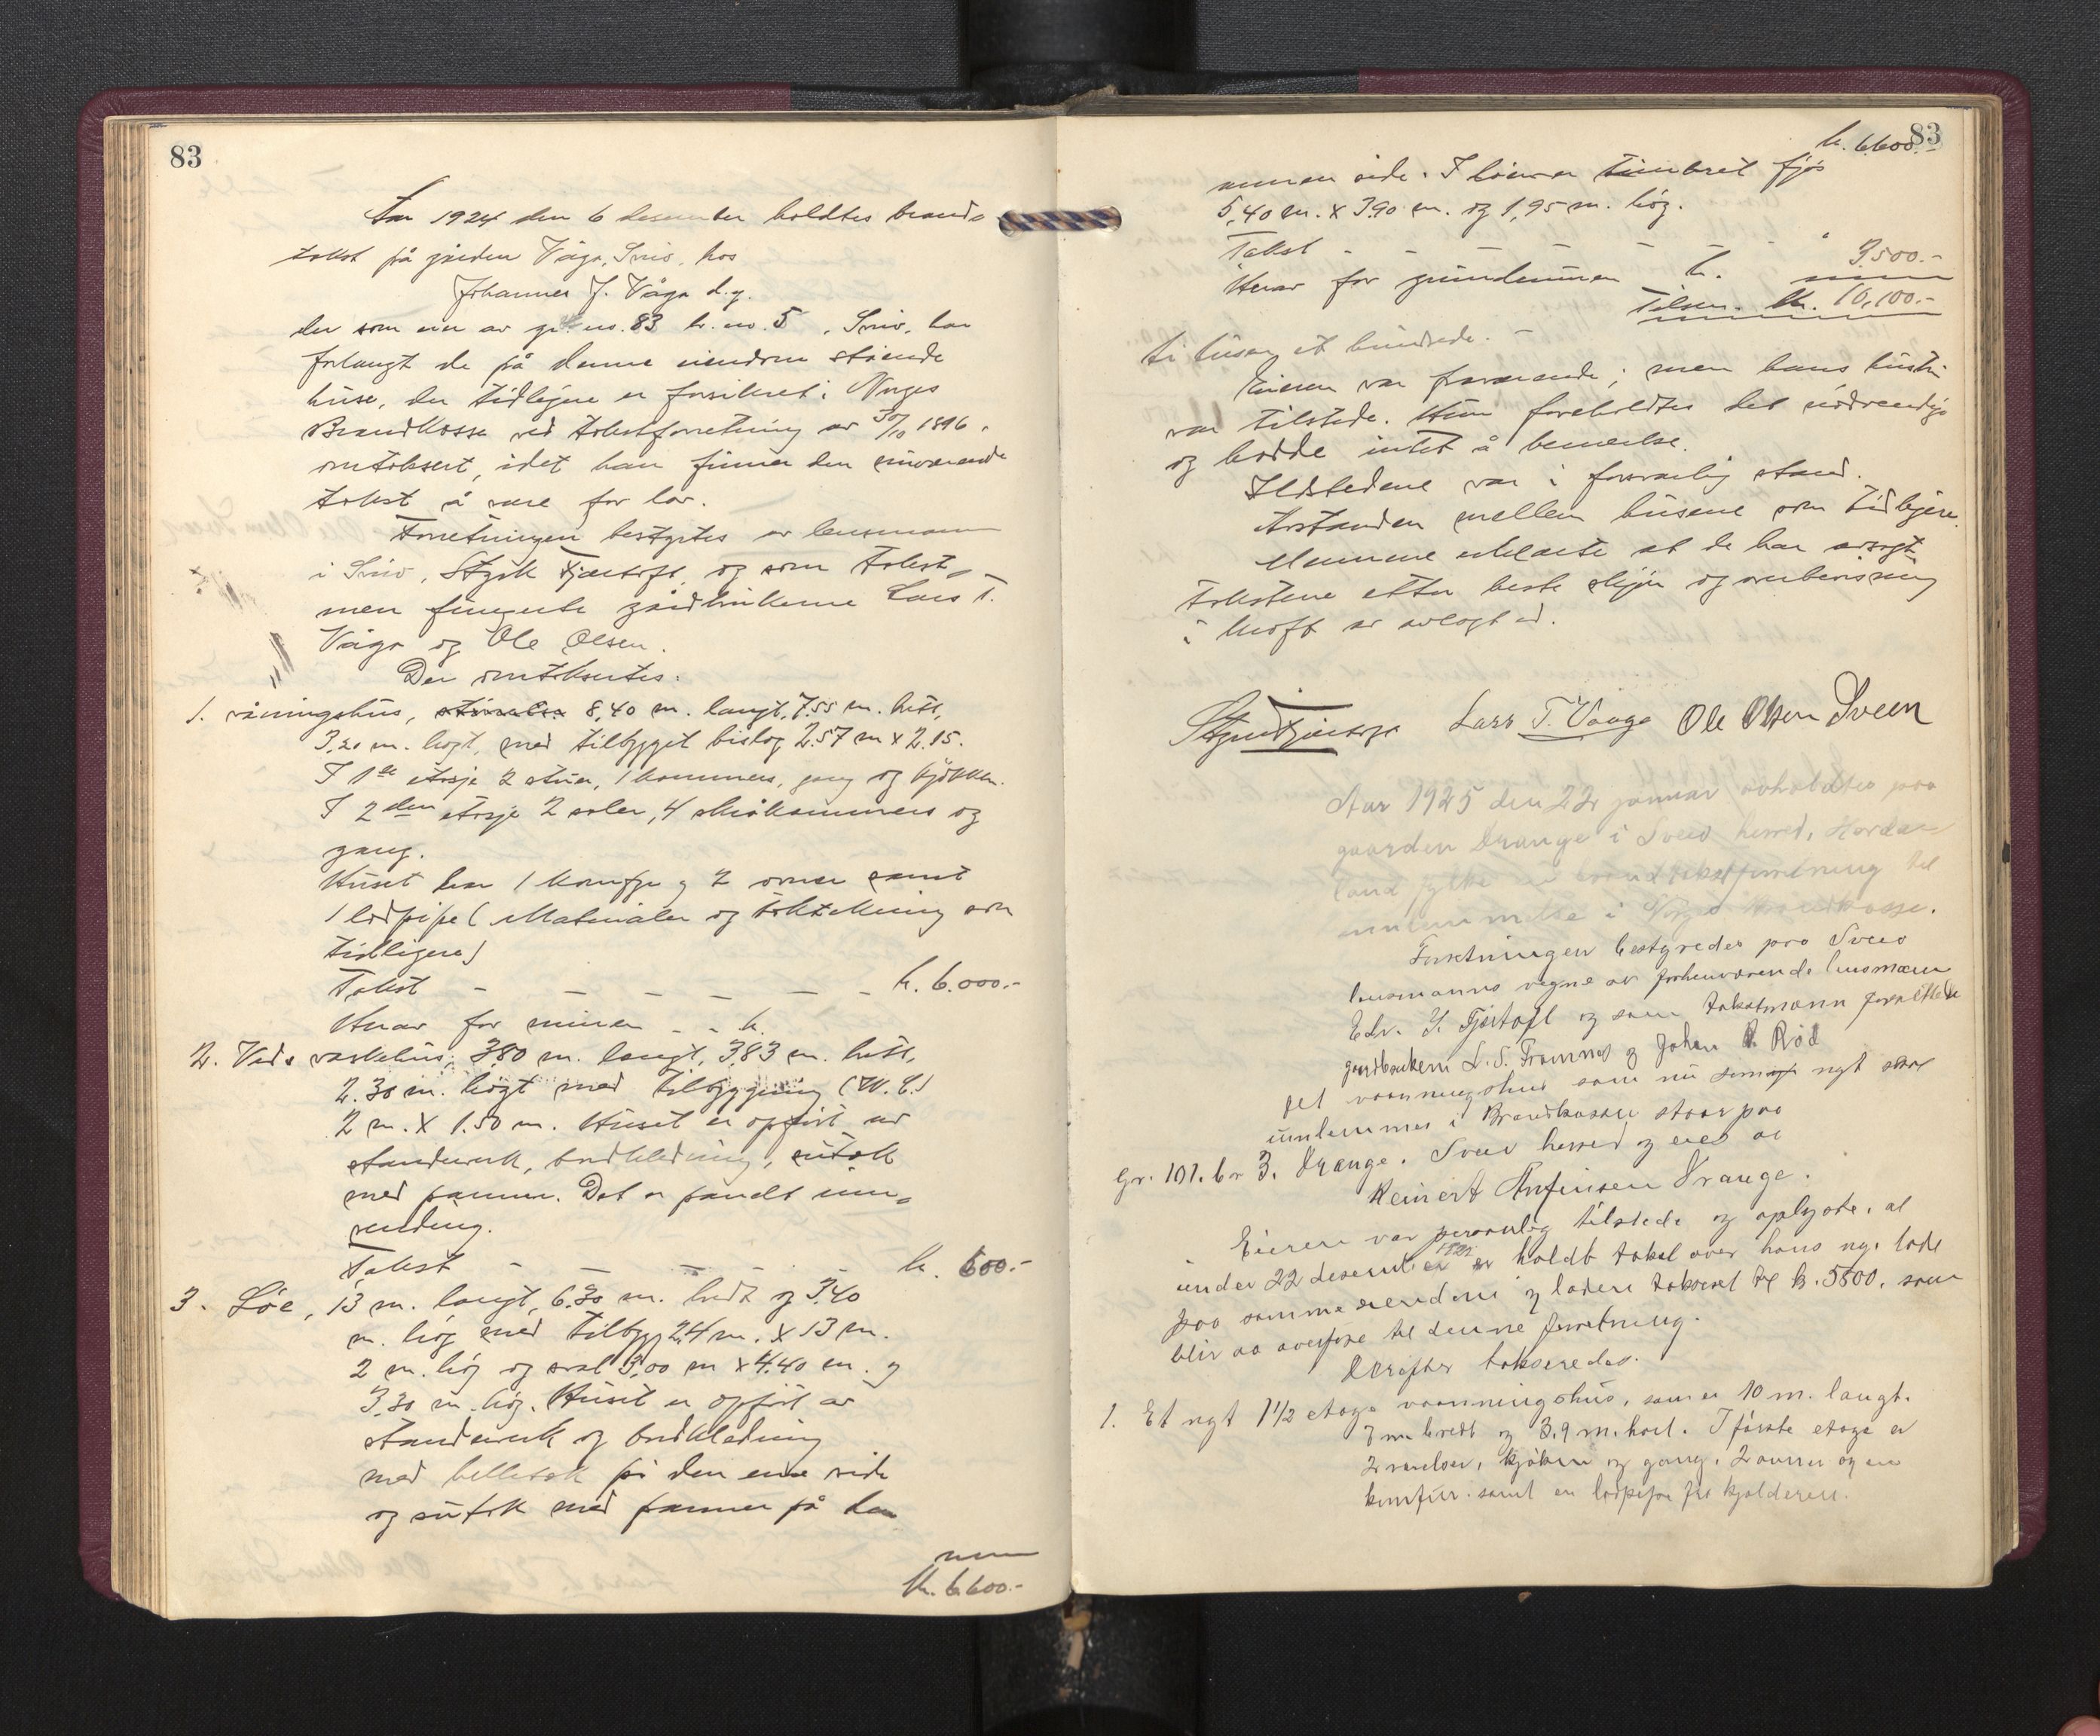 83
Aar 1924 den 6 desember holdtes brand-
takst på gården Våga, Sveio, hos
Johannes J. Våga d.y.
der som eier av gr. no. 83 br. no. 5, Sveio, har
forlangt de på denne eiendom stående
huse, der tidligere er forsikret i Norges
Brandkasse ved takstforretning av 30/10 1896,
omtaksert, idet han finner den nuværende
takst å være for lav.
Forretningen bestyrtes av lensmann
i Sveio, Styrk Fjærtoft, og som takst-
men fungerte gårdbrukerne Lars T.
Våga og Ole Olsen.
Der omtaksertes:
1. våningshus, 8,40 m. langt, 7.55 m. bredt,
3,20 m. høgt, med tilbygget bislag 2.57 m x 2.15.
I 1ste etasje 2 stuer, 1 kammers, gang og kjøkken.
I 2den etasje 2 saler, 4 småkammers og
gang.
Huset har 1 komfyr og 2 ovner samt
1 lodpipe (Materialer og taktekking som
tidligere)
Takst - - - - - - kr. 6.000.-
Herav for muren - - kr.
2. Ved & vaskehus, 3,80 m. langt, 3,83 m. bredt,
2.30 m. høgt med tilbygging (W.C.)
2 m. x 1.50 m. Huset er opført av
standverk, bordkledning, sutak
med panner. Det er panelt inn-
vendig.
Takst - - - - - kr. 600.-
3. Løe, 13 m. langt, 6.30 m. bredt og 3.40
m. høg med tilbygg 2.4 m. x 13 m.
2 m. høg og sval 3,00 m x 4.40 m. og
3.30 m. høg. Huset er opført av
standverk og bordkledning
med helletak på den ene side
og sutak med panner på den
kr. 6.600.-
83
kr. 6.600.-
annen side. I løen er timbret fjøs
5,40 m. x 3.90 m. og 1,95 m. høg.
Takst - - - - - - 3.500.-
Herav for grundmuren kr.
Tilsm. kr. 10,100.-
ti tusen et hundrede. -
Eieren var fraværende; men hans hustru
var tilstede. Hun foreholdtes det nødvendige
og hadde intet å bemerke.
Ildstedene var i forsvarlig stand.
Avstanden mellem husene som tidligere.
Mennene erklærte at de har avsagt
takstene etter beste skjøn og overbevisning
i kraft av avlagt ed.
Styrk Fjærtoft Lars T. Vaaga Ole Olsen Sveen
Aar 1925 den 22 januar avholdtes paa
gaarden Drange i Sveio herred, Horda-
land fylke en brandtakstforretning til
innlemmelse i Norges Brandkasse.
Forretningen bestyredes paa Sveio
lensmanns vegne av forhenværende lensmann
Edv. Y. Fjærtoft og som takstmænn forrettede
gardbrukern L. S. Framnes og Johan Rød
Det vaaningshus som nu nyt skal
innlemmes i Brandkassen staar paa
Gr. 101. br 3. Drange. Sveio herred og eies av
Reinert Anfinsen Drange.
Eieren var personlig tilstede og oplyste, at
under 22 desember 1921 er holdt takst over hans nye lade
paa samme eiendom og laden taksert til kr. 5500. som
blir aa overføre til denne forretning.
Derefter takseredes.
1. Et nyt 1 1/2 etage vaaningshus, som er 10 m. langt.
7 m. bredt og 3.9 m. høit. I første etage er
2 værelser, kjøken og gang, 2 ovner og en
komfur samt en lodpipe fra kjelderen.